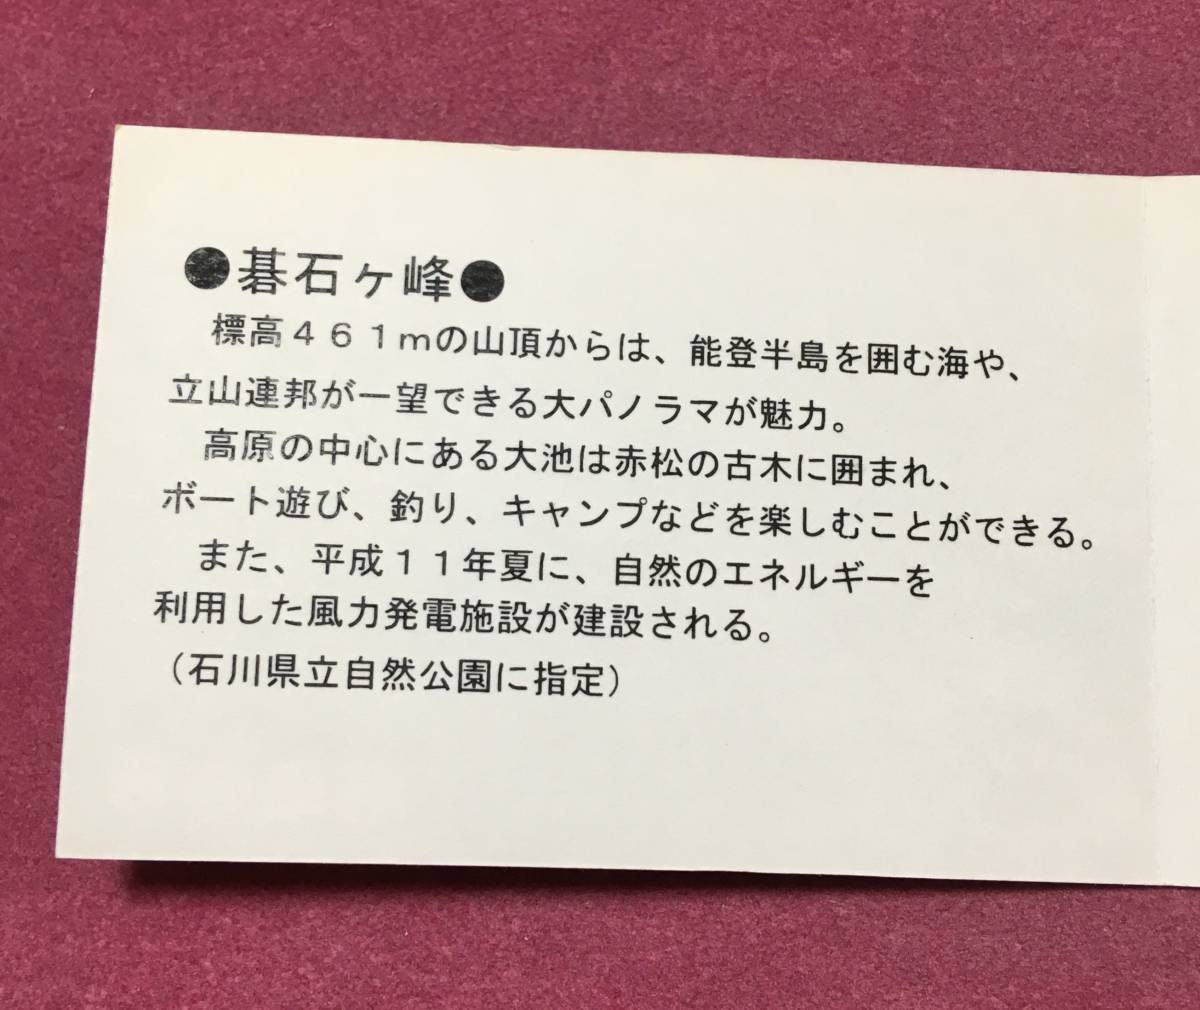 ●碁石ヶ峰●
標高４６１ｍの山頂からは、能登半島を囲む海や、
立山連邦が一望できる大パノラマが魅力。
高原の中心にある大池は赤松の古木に囲まれ、
ボート遊び、釣り、キャンプなどを楽しむことができる。
また、平成１１年夏に、自然のエネルギーを
利用した風力発電施設が建設される。
（石川県立自然公園に指定）